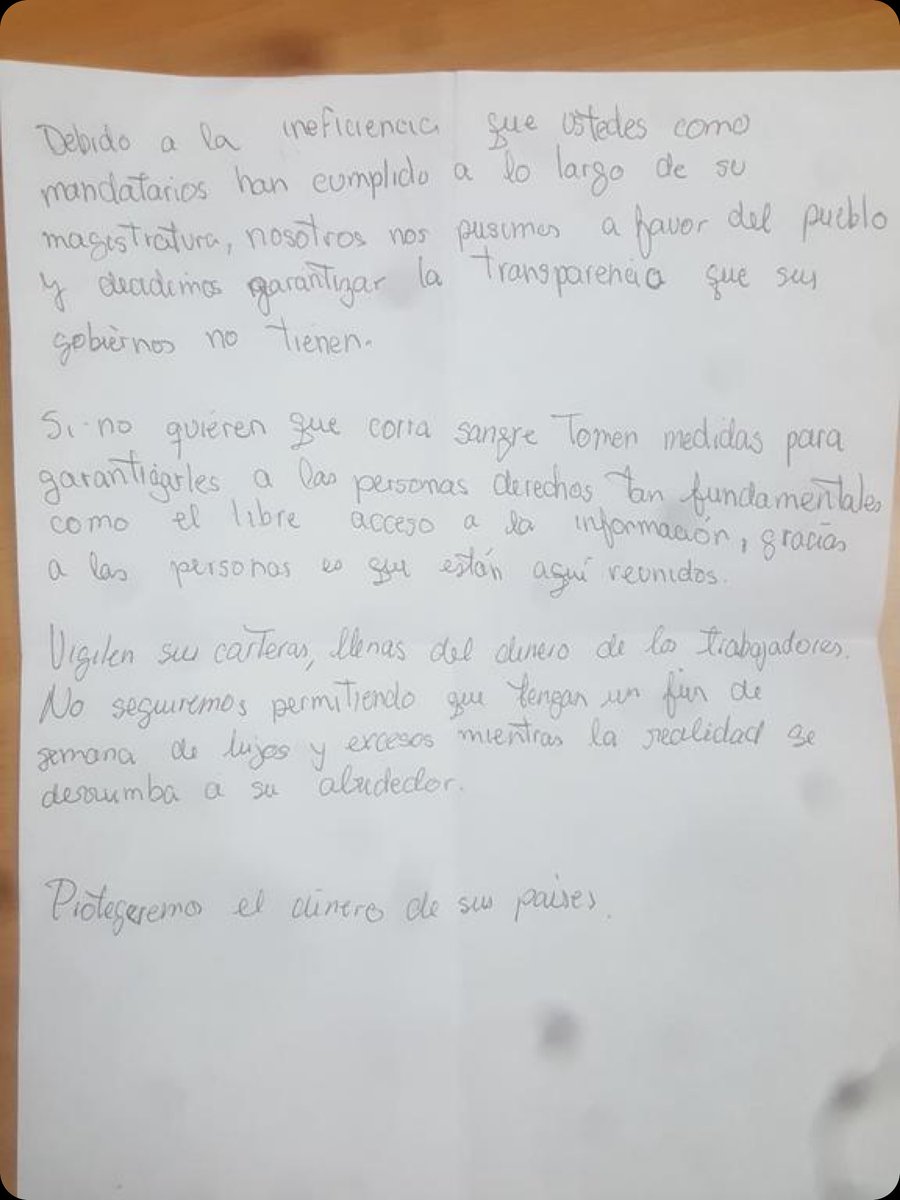 Debido a la ineficiencia que ustedes como
mandatarios han cumplido a lo largo de su
magistratura, nosotros nos pusimos a favor del pueblo
y decidimos garantizar la transparencia que sus
gobiernos no tienen.
Si no quieren que corra sangre tomen medidas para
garantizarles a las personas derechos tan fundamentales
como el libre acceso a la información, gracias
a las personas es que están aquí reunidos.
Vigilen sus carteras, llenas del dinero de los trabajadores.
No seguiremos permitiendo que tengan un fin de
semana de lujos y excesos mientras la realidad se
derrumba a su alrededor.
Protegeremos el dinero de sus paises.